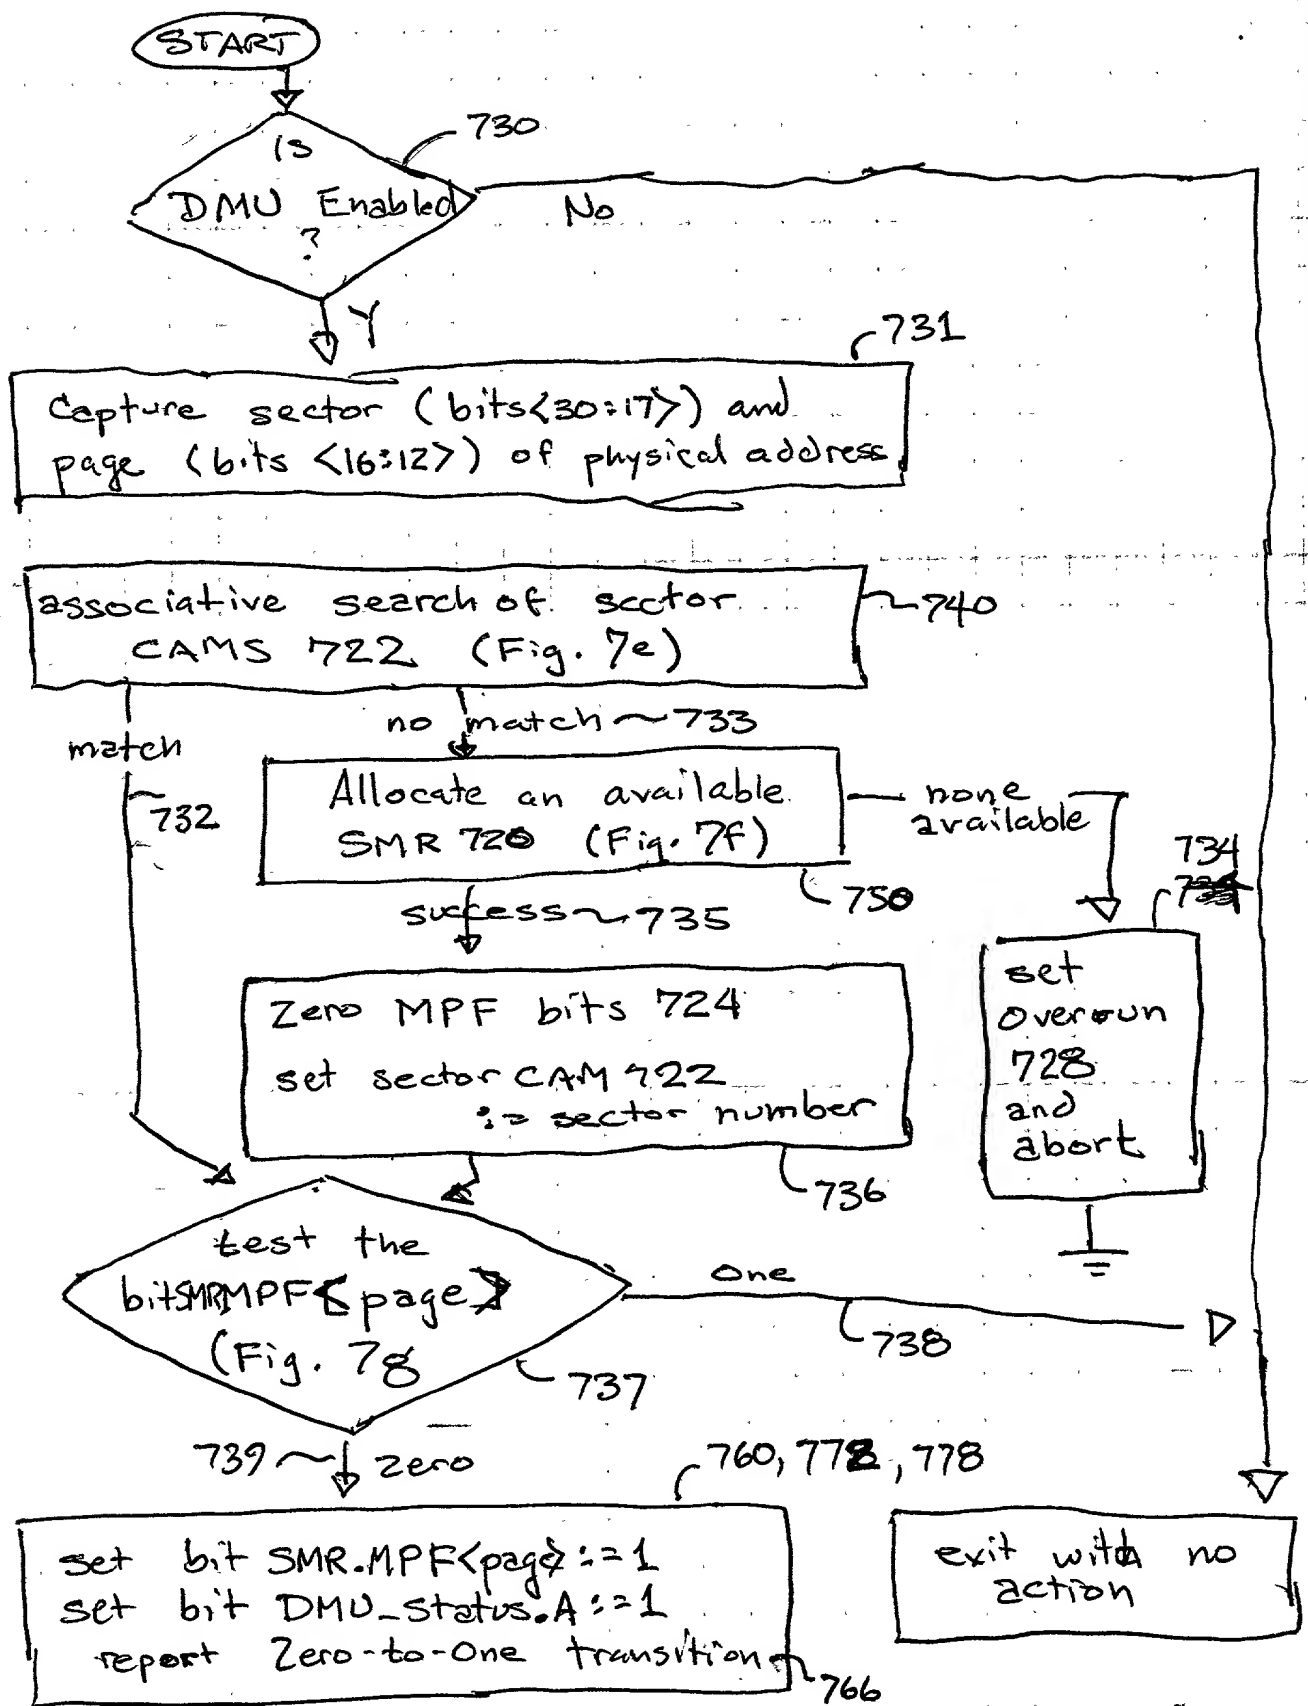 START
730
is
DMU Enabled
?
No
Y
731
Capture sector (bits<30:17>) and
page (bits <16:12>) of physical address
associative search of sector
CAMS 722 (Fig. 7e)
740
match
732
no match ~ 733
Allocate an available
SMR 720 (Fig. 7f)
none
available
750
734
success ~ 735
Zero MPF bits 724
set sector CAM 722
:= sector number
736
set
overrun
728
and
abort
test the
bit SMR MPF<page>
(Fig. 7g
737
One
738
739 ~ zero
760, 772, 778
set bit SMR.MPF<page>:=1
set bit DMU_Status.A:=1
report Zero-to-One transition
766
exit with no
action